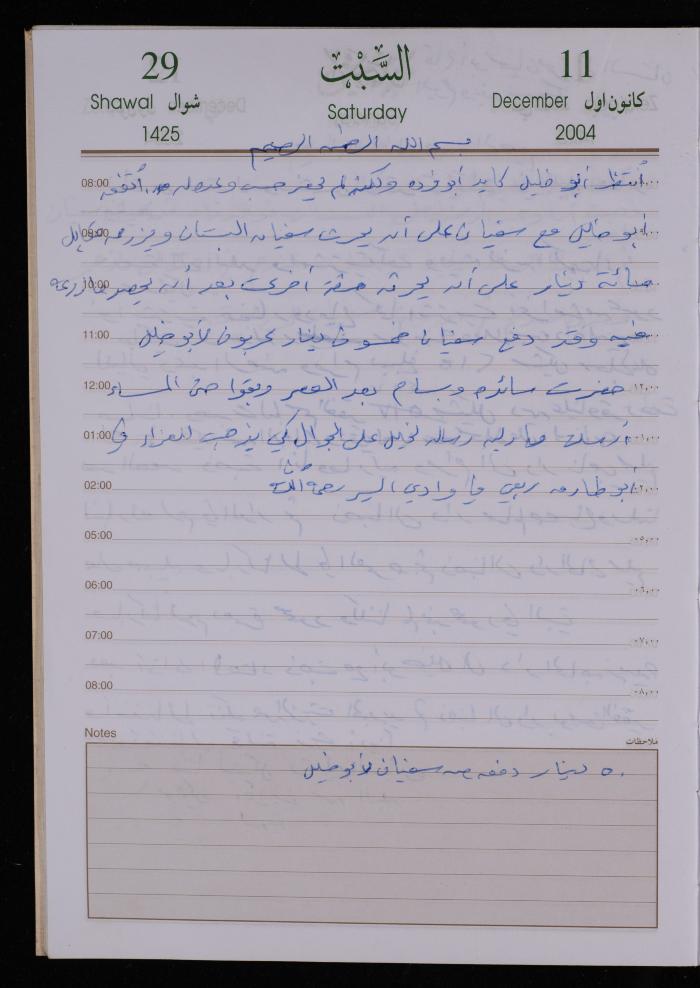 29 السَّبْت 11
Shawal شوال December كانون اول
Saturday
1425 2004
بسم الله الرحمن الرحيم
08:00 أنتظر أبو خليل كايد أبو فوده ولكنه لم يحضر حسب وعده له. أتفق
09:00 أبو خليل مع سفيان على أن يحرث سفيان البستان ويزرعه مقابل
10:00 مائة دينار على أن يحرثه مرة أخرى بعد أن يحصد ما زرعه
11:00 فيه وقد دفع سفيان خمسون دينار عربون لأبو خليل
12:00 حضرت سائده وبسام بعد العصر وبقوا حتى المساء ١٢,٠٠
01:00 أرسلت رساله لخليل على الجوال لكي يذهب للعزاء في ٠١,٠٠
02:00 أبو طارق ربعي في وادي السير رحمة الله ٠٢,٠٠
05:00 ٠٥,٠٠
06:00 ٠٦,٠٠
07:00 ٠٧,٠٠
08:00 ٠٨,٠٠
Notes ملاحظات
٥٠ دينار دفعه من سفيان لأبو خليل